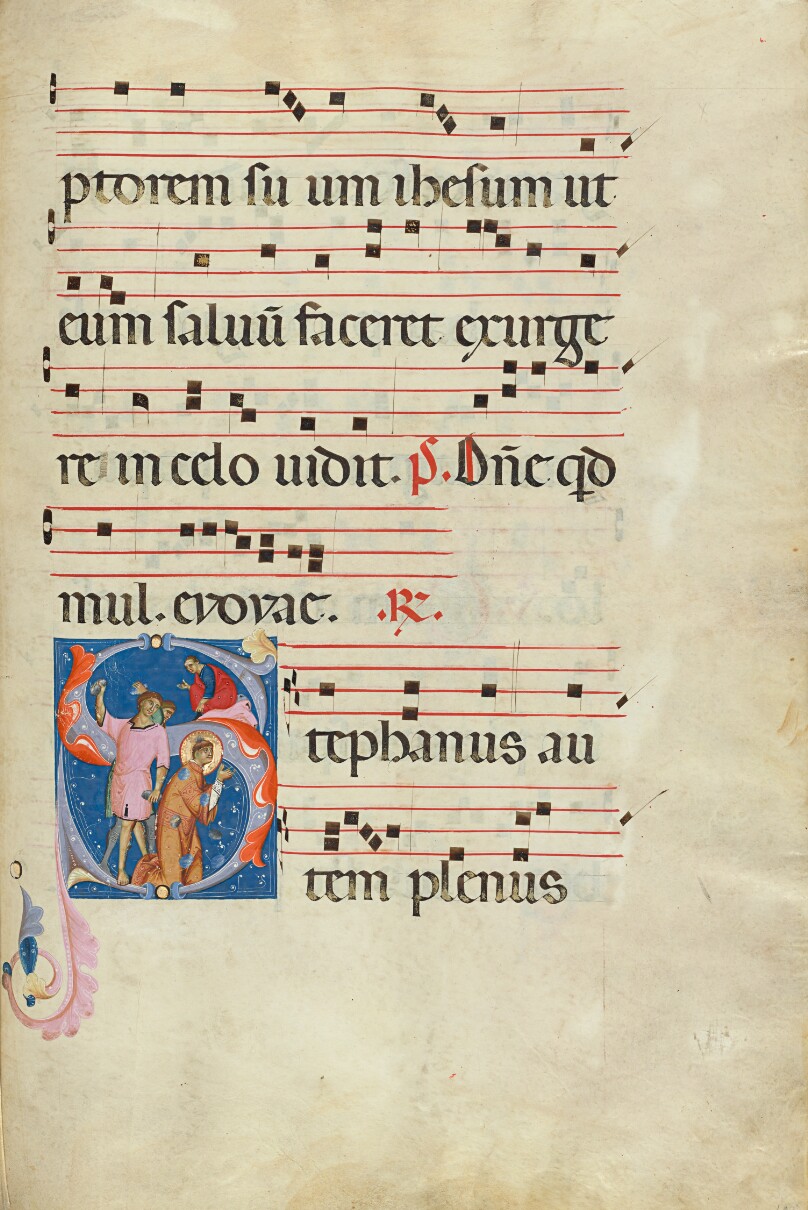 ptorem su um ihesum ut
eum saluū faceret exurge
re in celo uidit. p̄s. Dn̄e qd
mul. evovae. .R.
Stephanus au
tem plenus